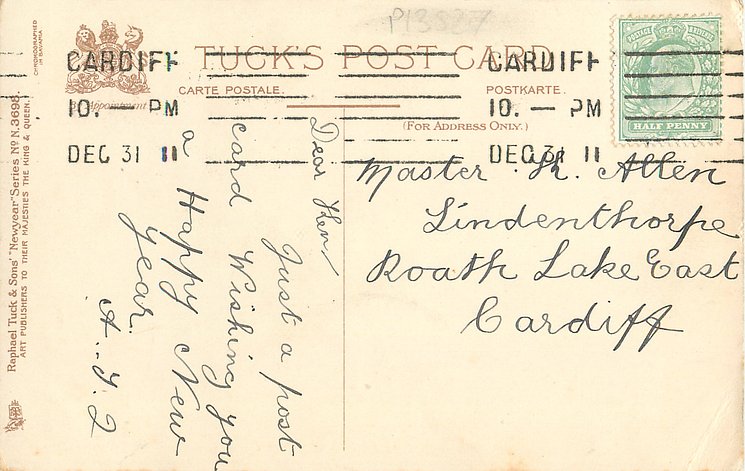 P13887
TUCK'S POST CARD
CARTE POSTALE.
POSTKARTE.
By Appointment
(FOR ADDRESS ONLY.)
CARDIFF
10. — PM
DEC 31 11
CARDIFF
10. — PM
DEC 31 11
POSTAGE
HALF PENNY
CHROMOGRAPHED
IN BAVARIA
Raphael Tuck & Sons' "Newyear" Series No N. 3698.
ART PUBLISHERS TO THEIR MAJESTIES THE KING & QUEEN.
Dear Ken
Just a post
card Wishing you
a Happy New
Year.
Master K. Allen
Lindenthorpe
Roath Lake East
Cardiff